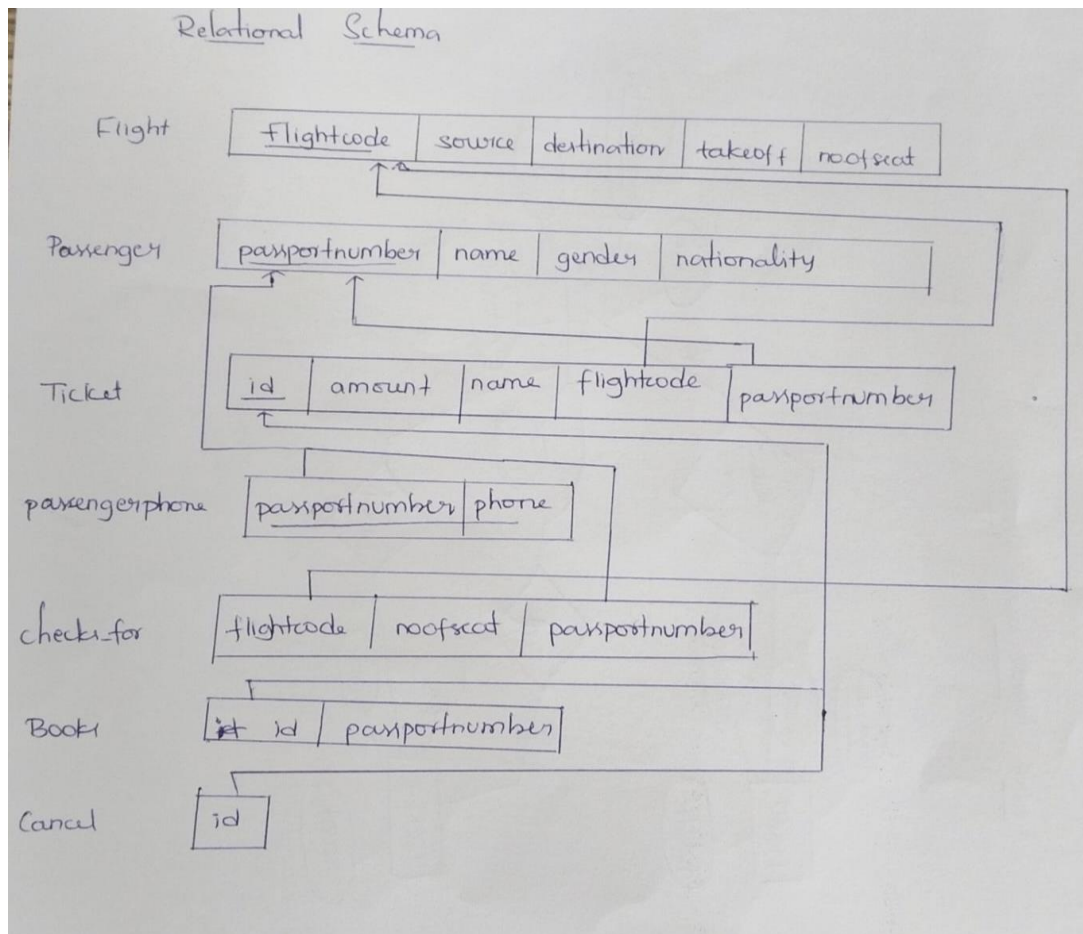 Relational Schema
Flight flightcode source destination takeoff noofseat
Passenger passportnumber name gender nationality
Ticket id amount name flightcode passportnumber
passengerphone passportnumber phone
checks_for flightcode noofseat passportnumber
Books id passportnumber
Cancel id